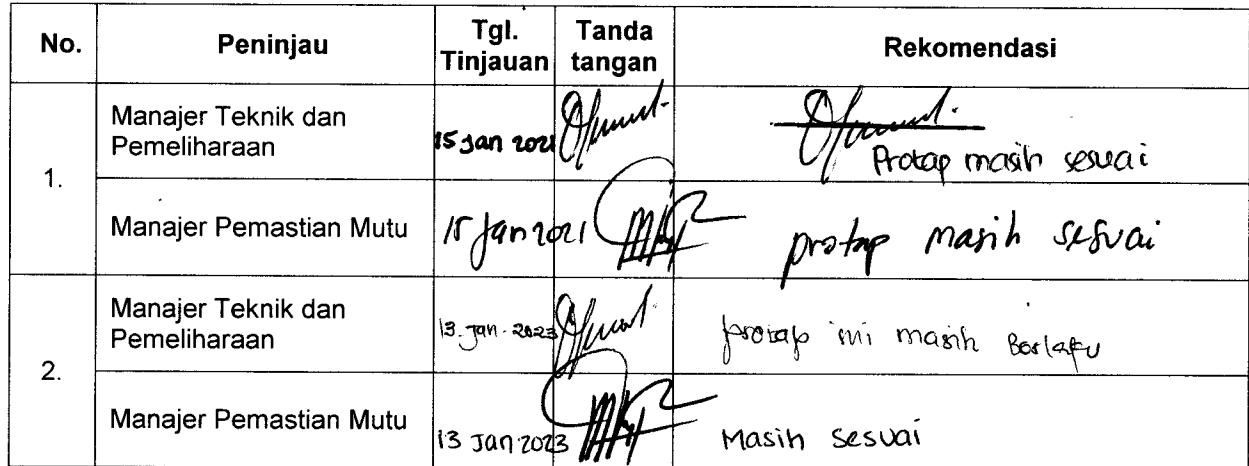 No. Peninjau Tgl. Tinjauan Tanda tangan Rekomendasi
1.
Manajer Teknik dan Pemeliharaan 15 Jan 2021 Protap masih sesuai
Manajer Pemastian Mutu 15 Jan 2021 protap masih sesuai
2.
Manajer Teknik dan Pemeliharaan 13-Jan-2023 protap ini masih Berlaku
Manajer Pemastian Mutu 13 Jan 2023 Masih sesuai